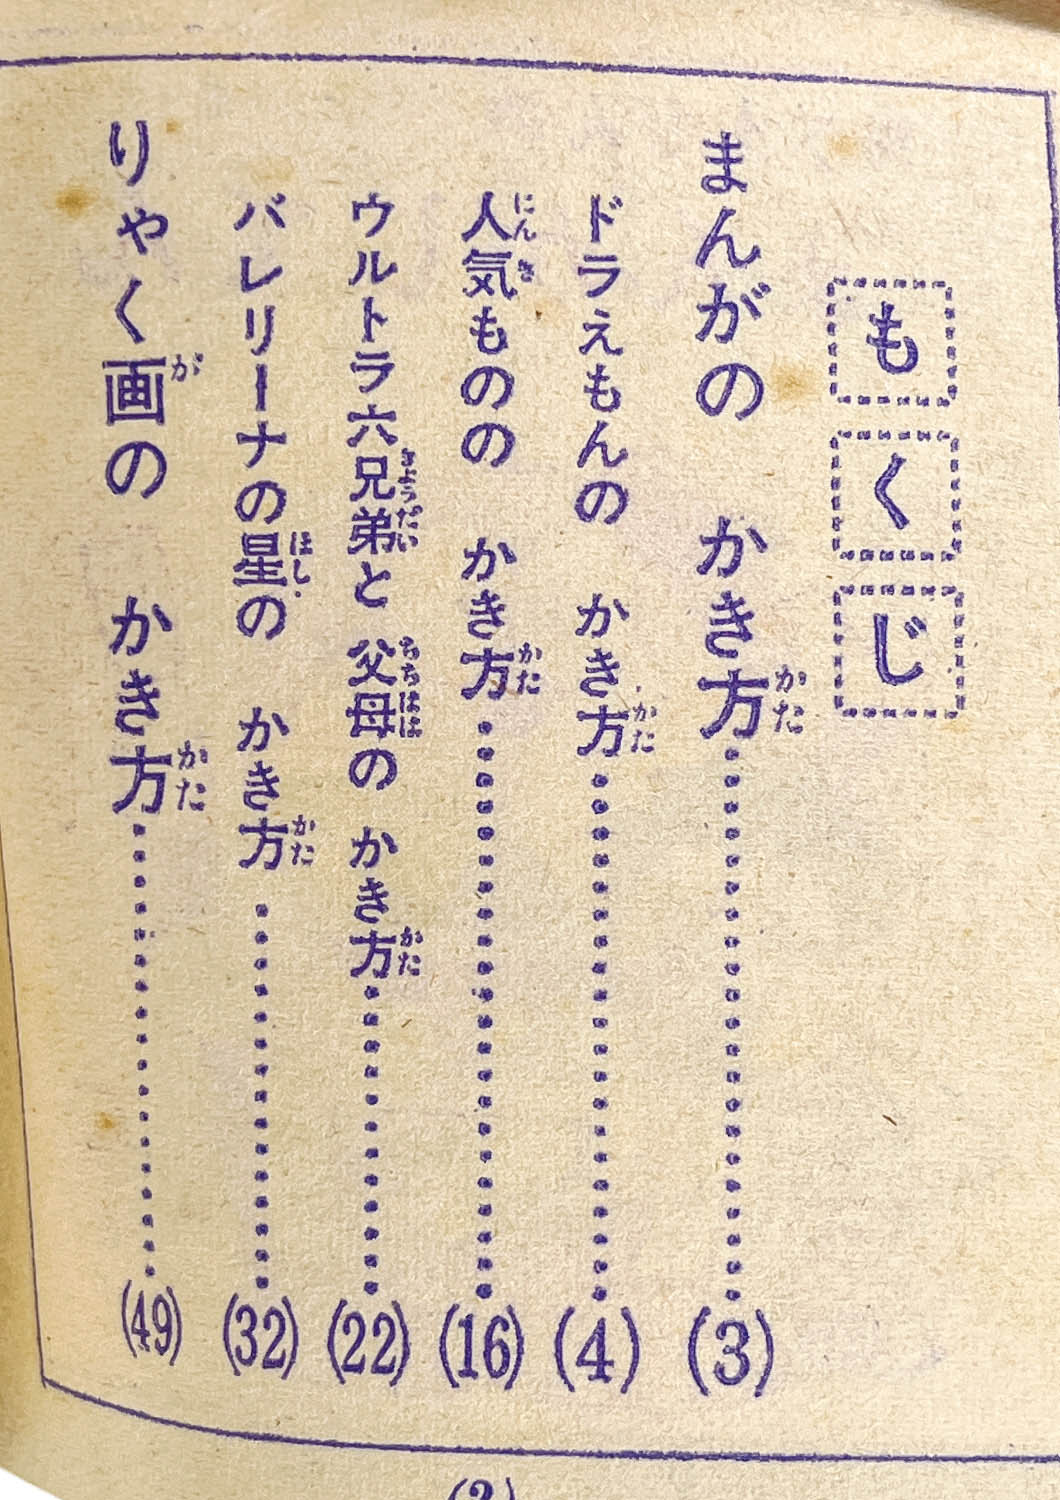 もくじ
まんがの　かき方かた……(3)
ドラえもんの　かき方かた……(4)
人気にんきものの　かき方かた……(16)
ウルトラ六兄弟きょうだいと　父母ちちははの　かき方かた……(22)
バレリーナの星ほしの　かき方かた……(32)
りゃく画がの　かき方かた……(49)
(2)